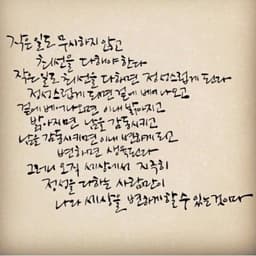 작은 일도 무시하지 않고
최선을 다해야 한다
작은 일에도 최선을 다하면 정성스럽게 된다
정성스럽게 되면 겉에 배어 나오고
겉에 배어 나오면 이내 밝아지고
밝아지면 남을 감동시키고
남을 감동시키면 이내 변하게 되고
변하면 생육된다
그러니 오직 세상에서 지극히
정성을 다하는 사람만이
나와 세상을 변하게 할 수 있는 것이다